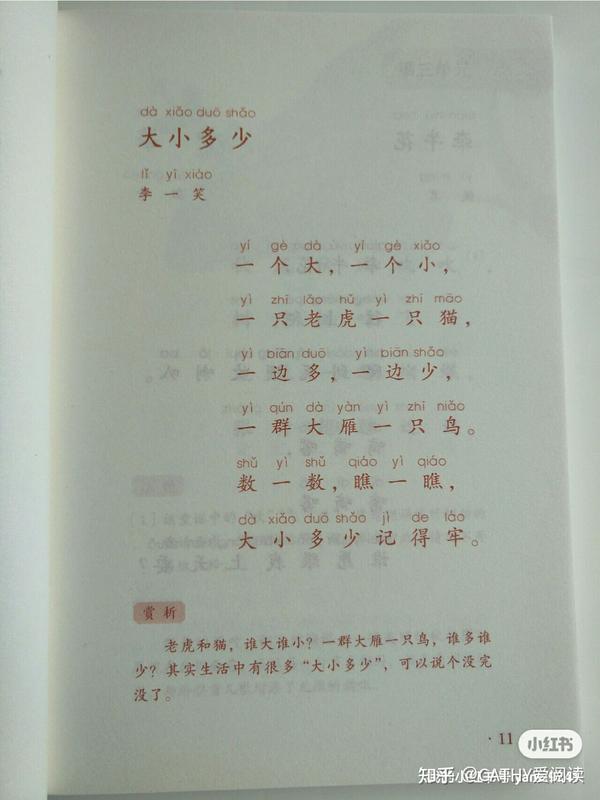 dà xiǎo duō shǎo
大小多少
lǐ yì xiào
李一笑
yí gè dà yí gè xiǎo
一个大，一个小，
yì zhī lǎo hǔ yì zhī māo
一只老虎一只猫，
yì biān duō yì biān shǎo
一边多，一边少，
yì qún dà yàn yì zhī niǎo
一群大雁一只鸟。
shǔ yì shǔ qiáo yì qiáo
数一数，瞧一瞧，
dà xiǎo duō shǎo jì de láo
大小多少记得牢。
赏析
老虎和猫，谁大谁小？一群大雁一只鸟，谁多谁
少？其实生活中有很多“大小多少”，可以说个没完
没了。
·11
小红书
知乎 @CATHY爱阅读